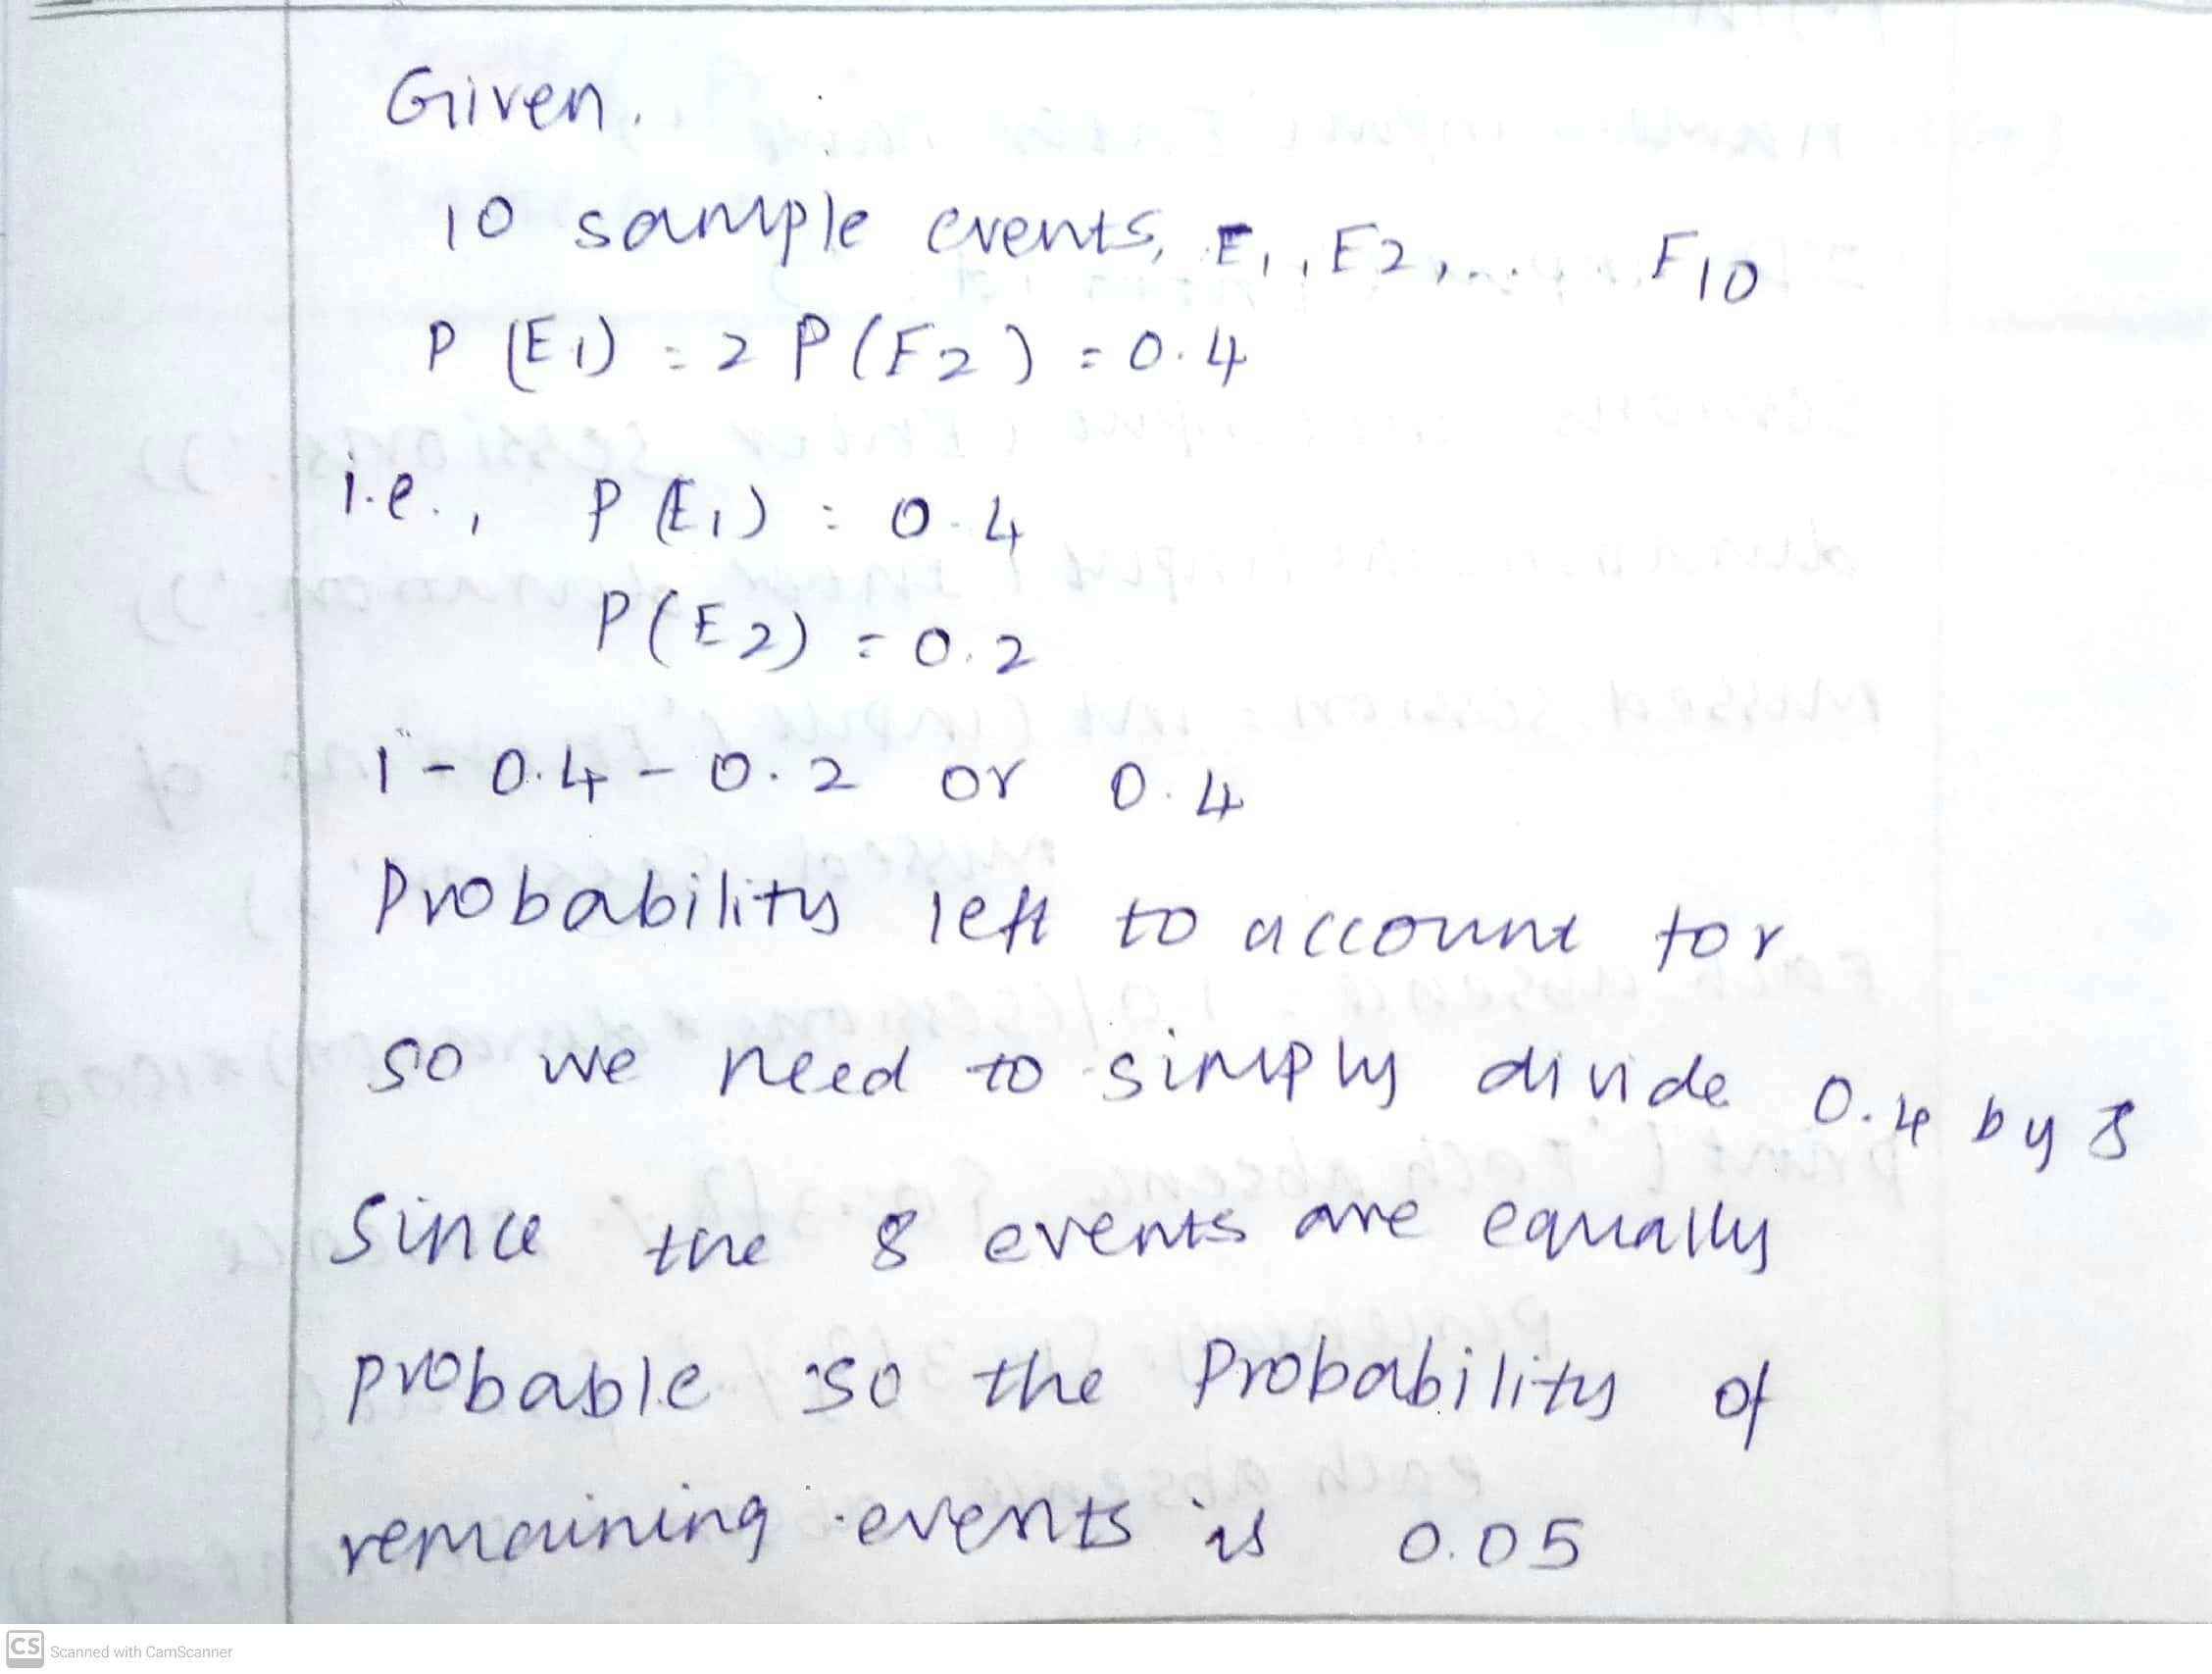 Given.
10 sample events, E1, E2, .... F10
P (E1) = 2 P(F2) = 0.4
i.e., P(E1) = 0.4
P(E2) = 0.2
1 - 0.4 - 0.2 or 0.4
Probability left to account for
so we need to simply divide 0.4 by 8
Since the 8 events are equally
probable so the Probability of
remaining events is 0.05
CS Scanned with CamScanner